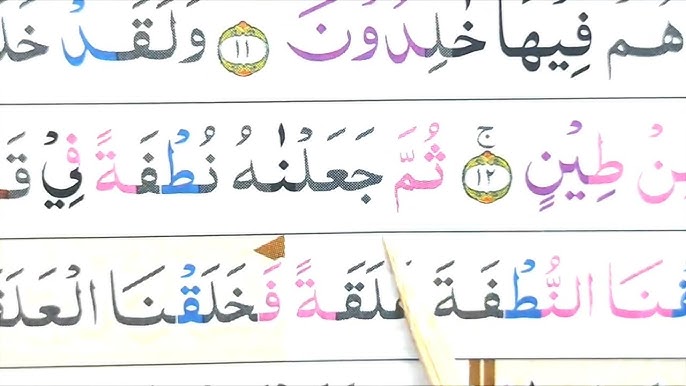 هُمْ فِيهَا خٰلِدُونَ ١١ وَلَقَدْ خَلَ
نْ طِيْنٍ ۚ ١٢ ثُمَّ جَعَلْنٰهُ نُطْفَةً فِيْ قَ
قْنَا النُّطْفَةَ عَلَقَةً فَخَلَقْنَا الْعَلَقَ